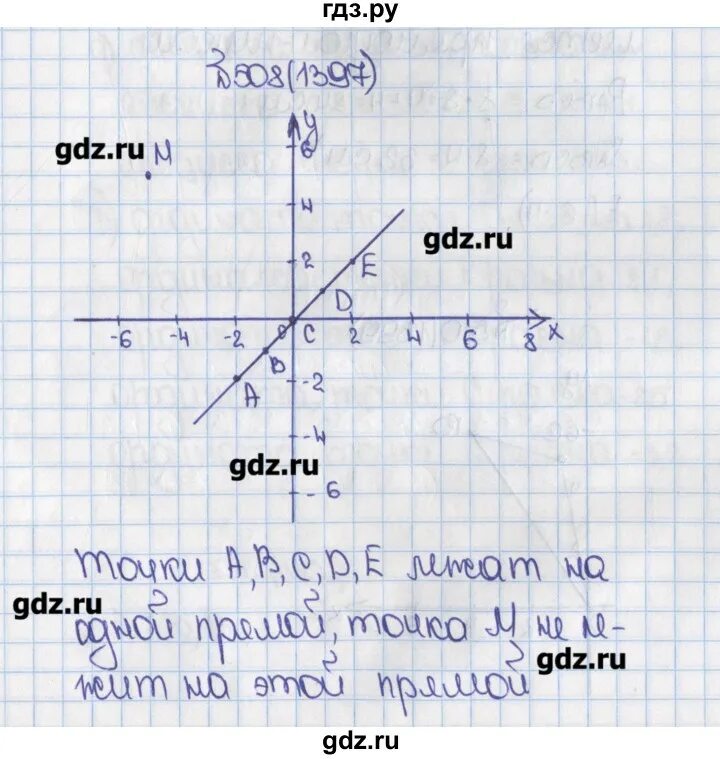 гдз.ру
№508(1397)
gdz.ru М
у
6
4
gdz.ru
2
E
D
-6 -4 -2 0 C 2 4 6 8 x
B
A
-2
-4
gdz.ru
-6
точки A, B, C, D, E лежат на
gdz.ru
одной прямой, точка М не ле-
gdz.ru
жит на этой прямой
gdz.ru